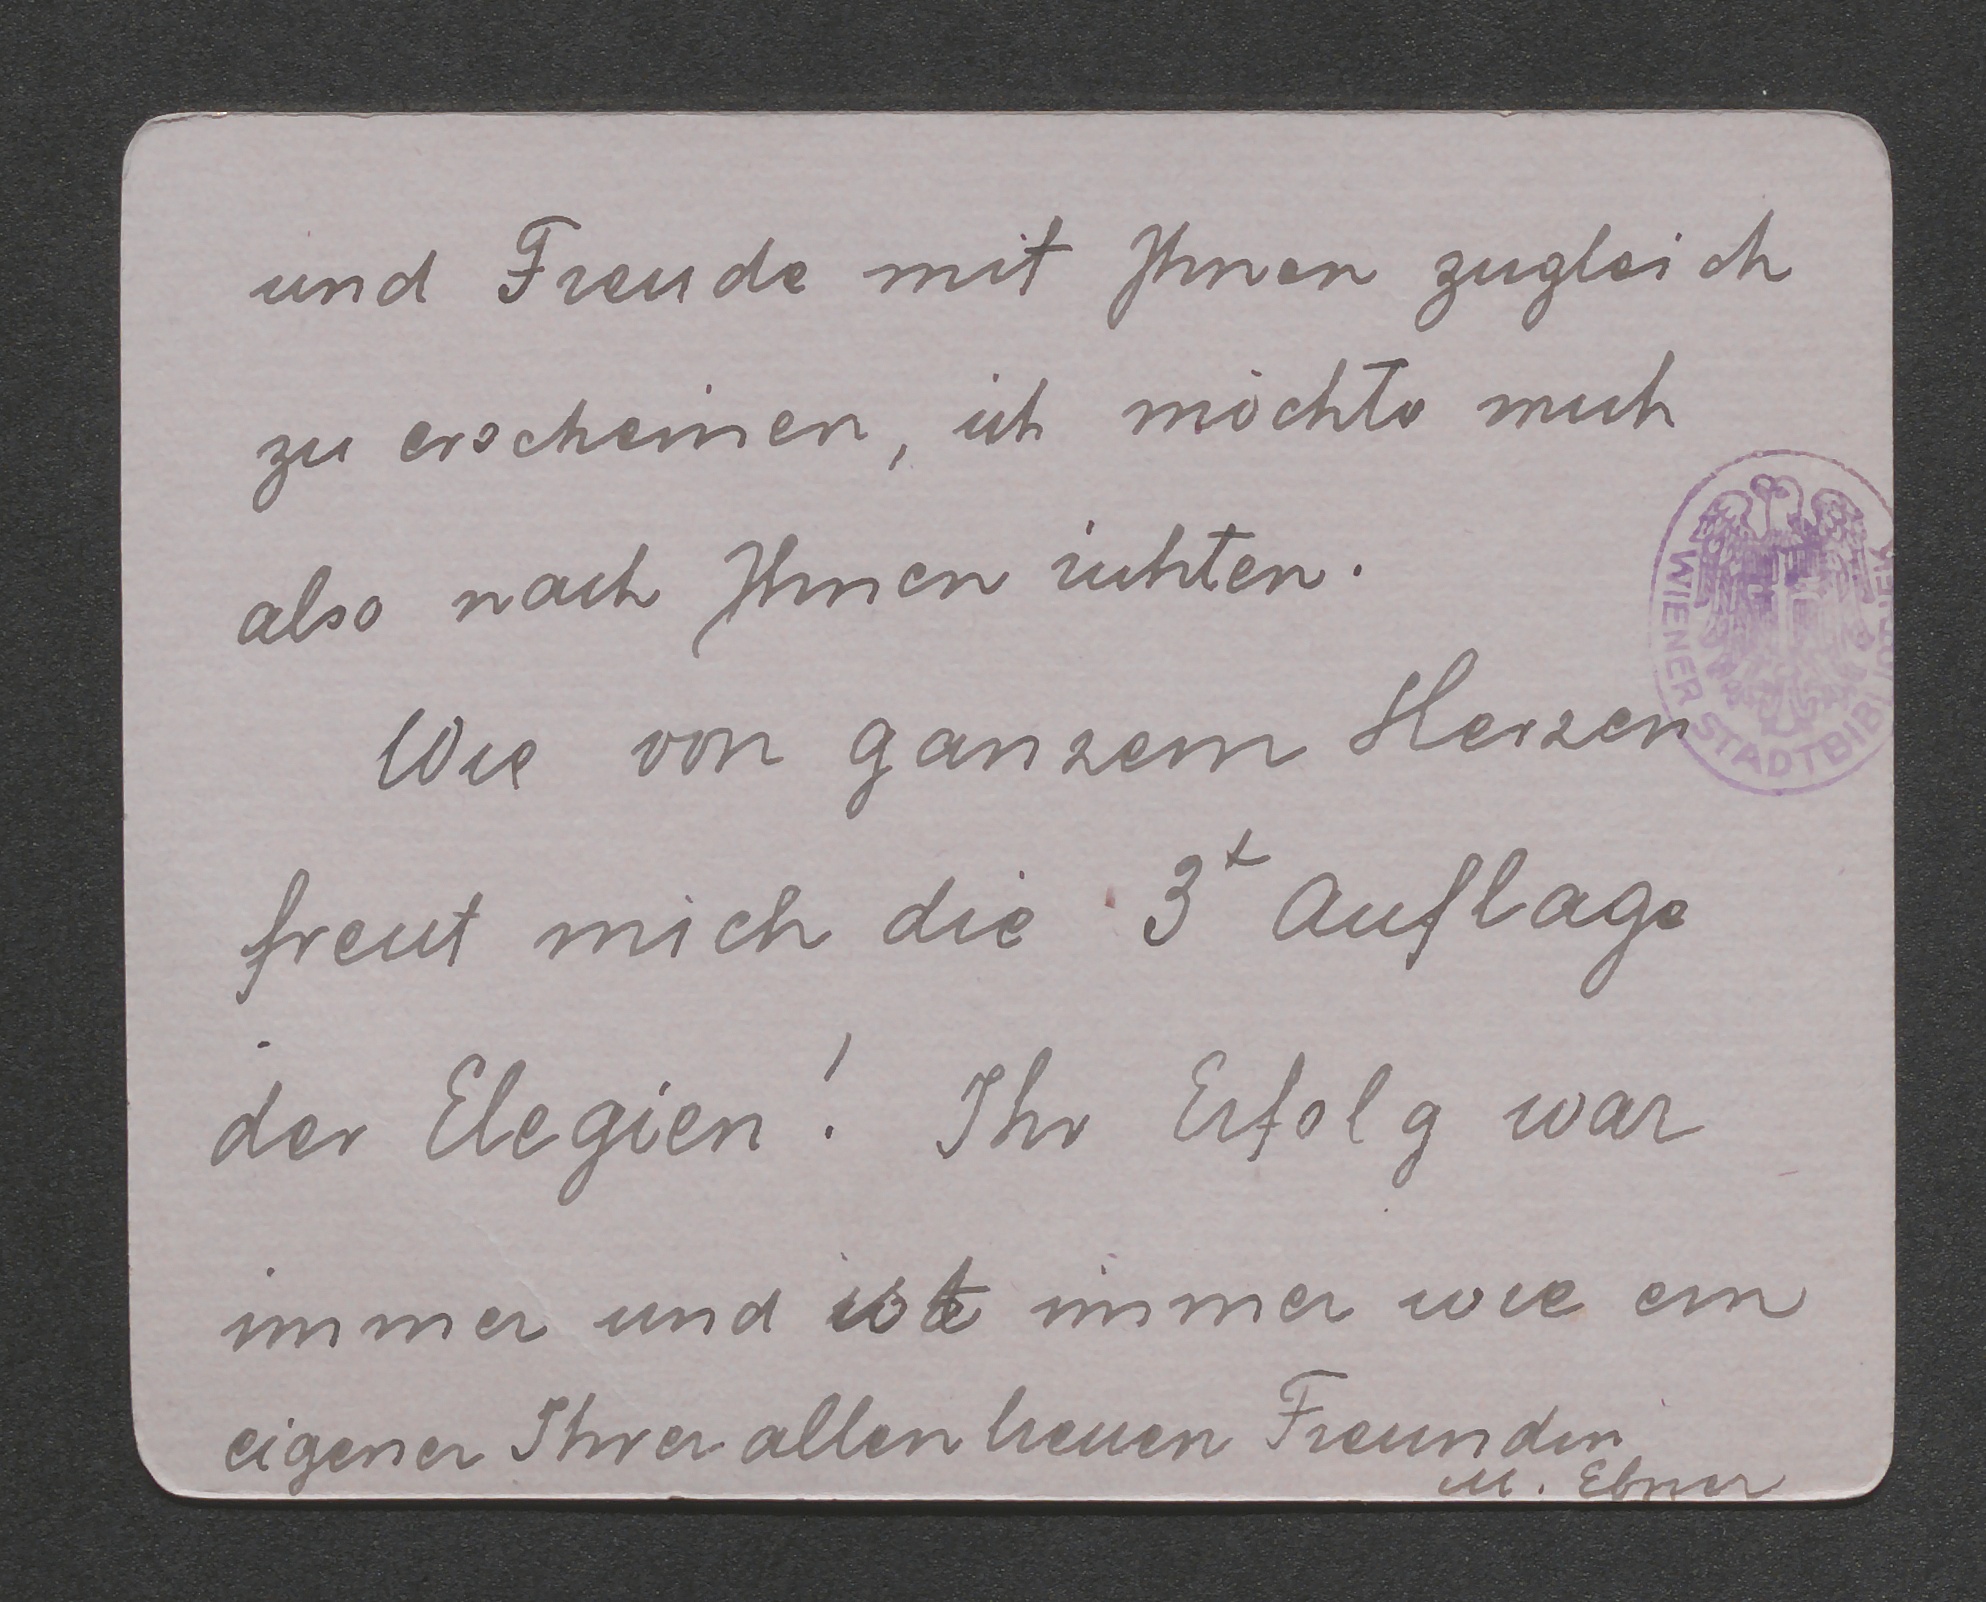 und Freude mit Ihnen zugleich
zu erscheinen, ich möchte mich
also nach Ihnen richten.
Wie von ganzem Herzen
freut mich die 3t Auflage
der Elegien! Ihr Erfolg war
immer und ist immer wie ein
eigener Ihrer allen treuen Freundin
M. Ebner
WIENER STADTBIBL